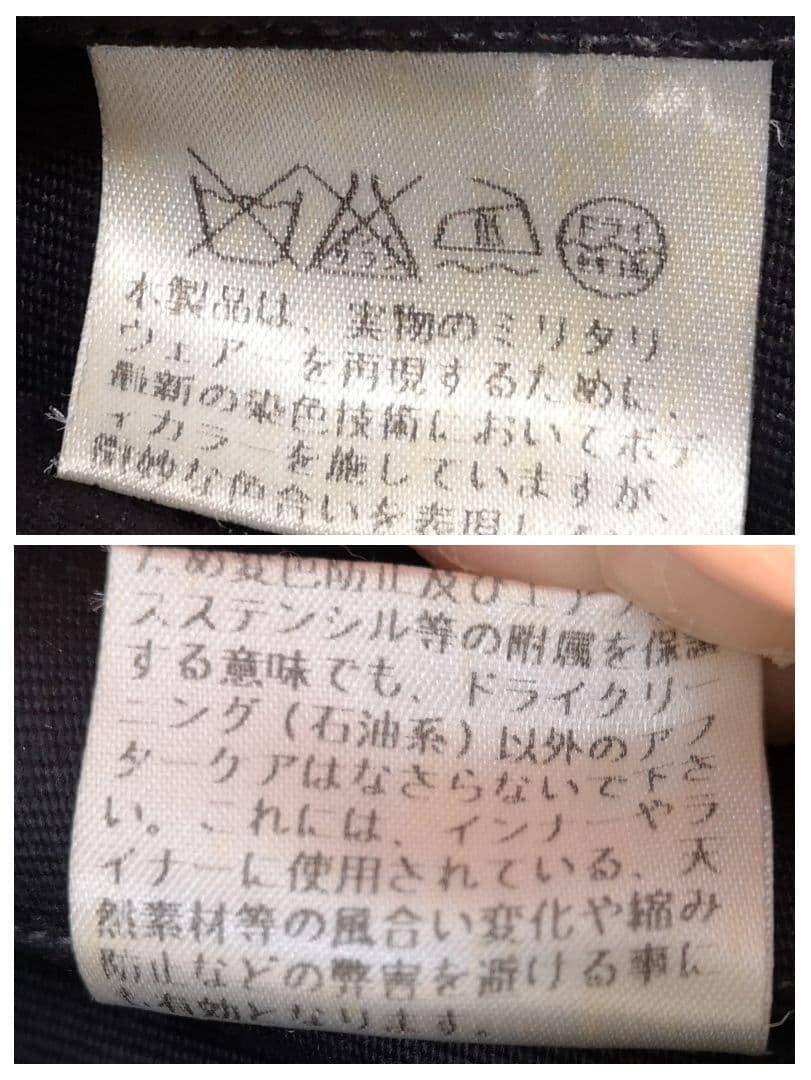 ドライ
本製品は、実物のミリタリ
ウェアーを再現するために、
最新の染色技術においてボデ
ィカラーを施していますが、
微妙な色合いを表現し
ため変色防止及び
スステンシル等の附属を保護
する意味でも、ドライクリー
ニング(石油系)以外のアフ
ターケアはなさらないで下さ
い。これには、インナーやラ
イナーに使用されている、天
然素材等の風合い変化や縮み
防止などの弊害を避ける事に
も有効となります。